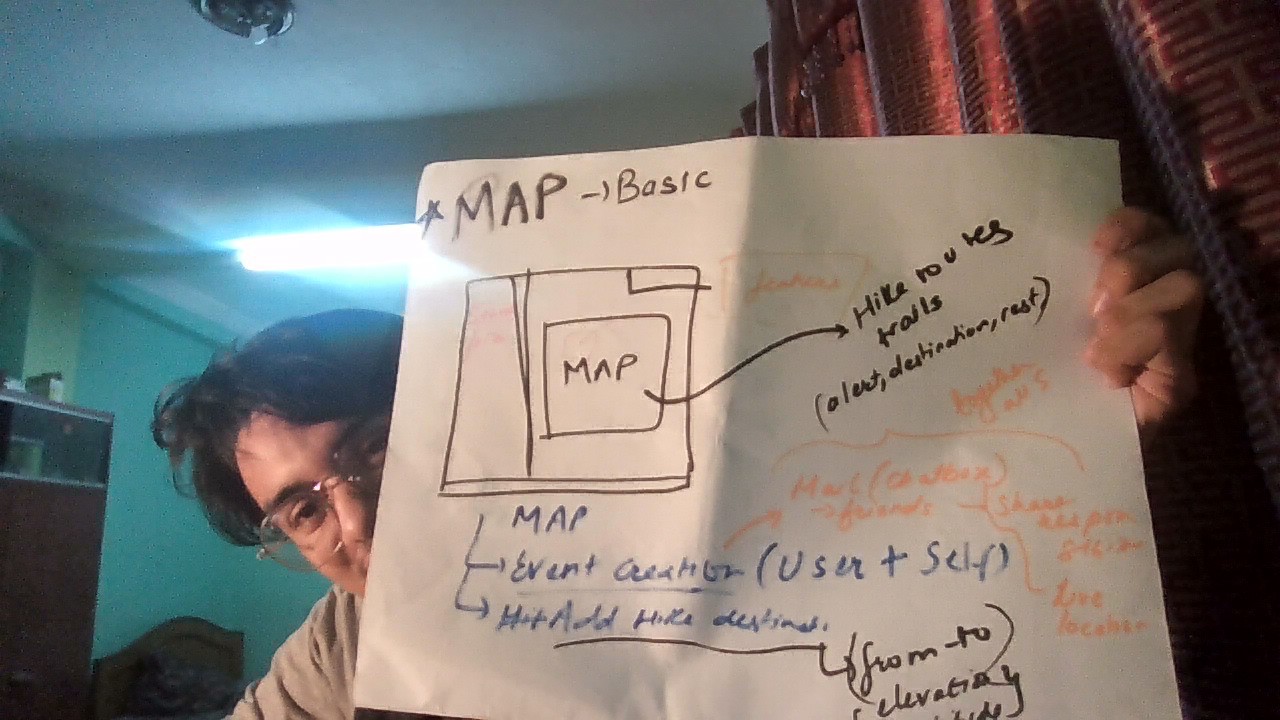 * MAP → Basic
features
Hike routes
trails
(alert, destination, rest)
MAP
together
Mail (Chatbox)
→ friends
Share
live
location
MAP
→ Event creation (User + Self)
→ Hit Add Hike destinat.
(from-to)
elevation